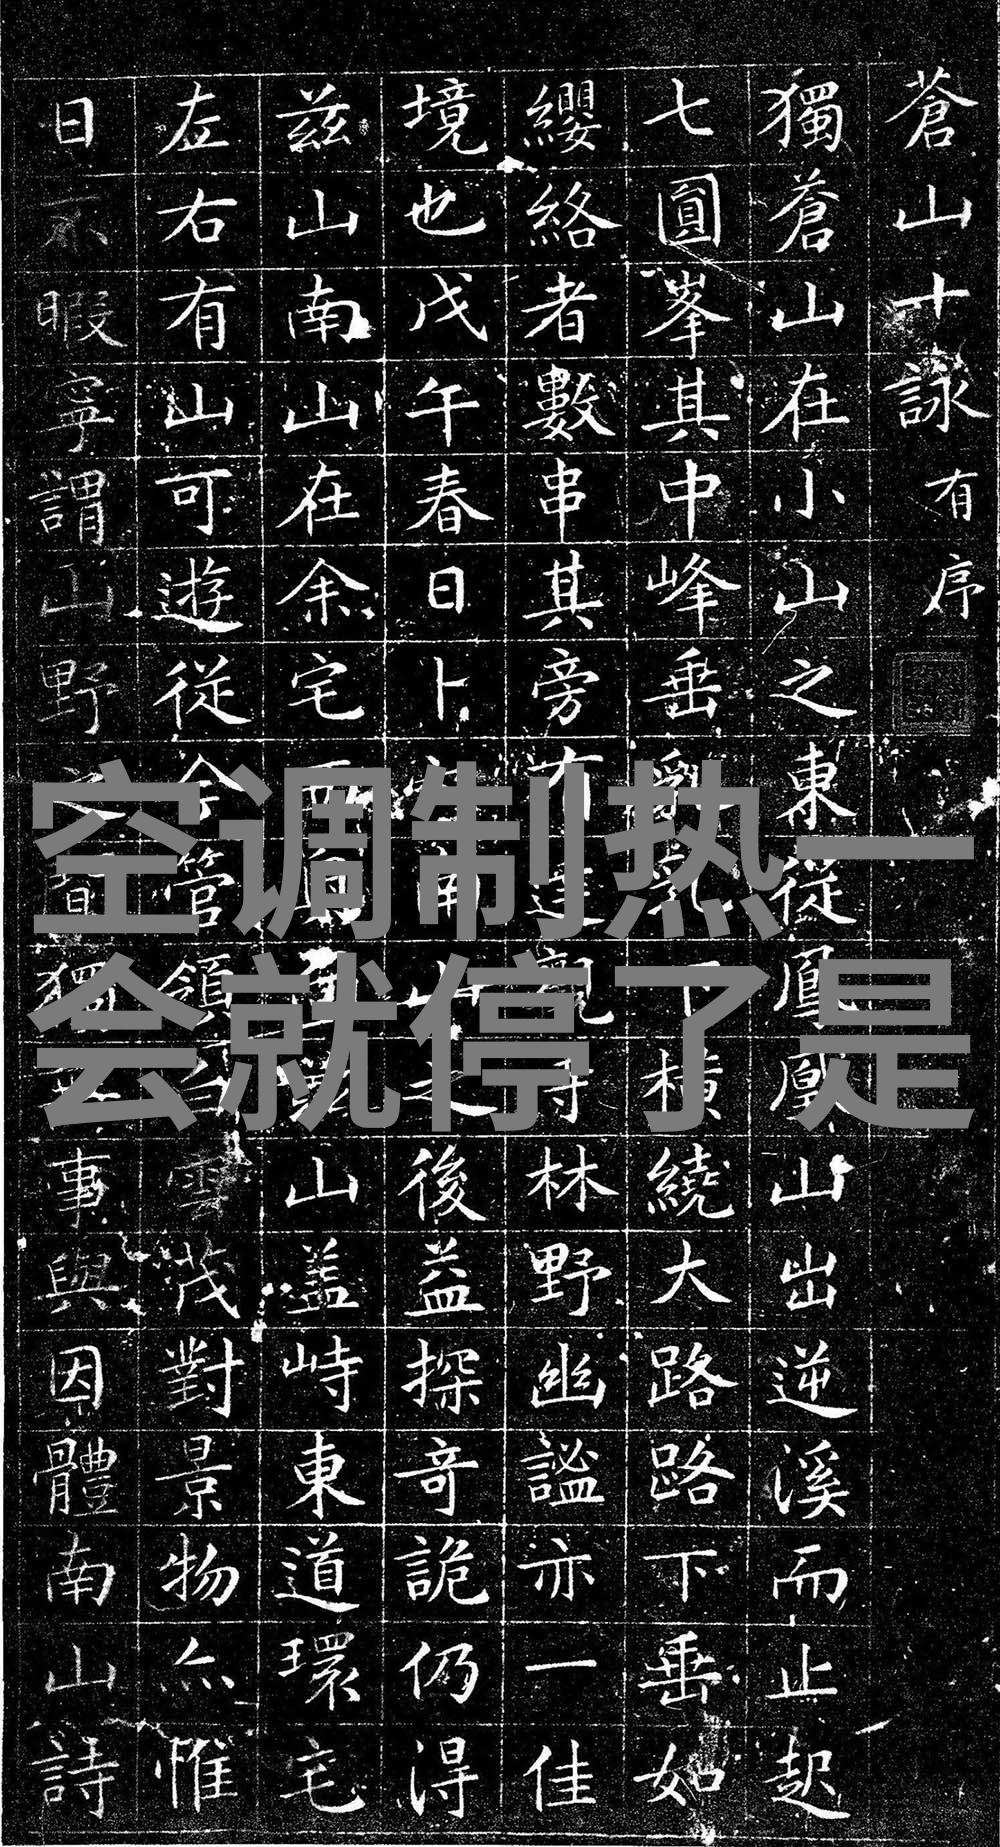 蒼山十詠 有序
獨蒼山在小山之東從鳳凰山出逆溪而止起
七圓峯其中峰垂乳下橫繞大路路下垂如
纓絡者數串其旁有寺林野幽謐亦一佳
境也戊午春日卜南山之後益探奇詭仍得
茲山南山在余宅山盖峙東道環宅
左右有山可遊從余管領白雲茂對景物亦惟
日不暇寧謂山野之獨無事與因體南山詩
空调制热一
会就停了是